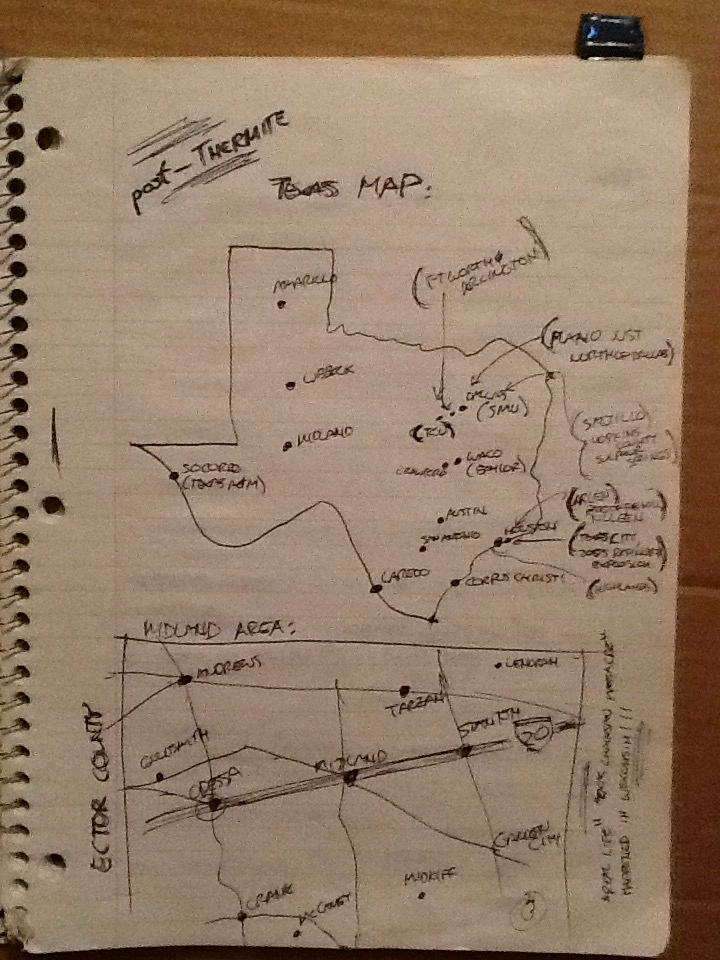 post-THERMITE
TEXAS MAP:
AMARILLO
(FT WORTH &
ARLINGTON)
(PLANO JUST
NORTH OF DALLAS)
LUBBOCK
DALLAS
(SMU)
(TCU)
(SALTILLO
HOPKINS
COUNTY
SULPHUR
SPRINGS)
MIDLAND
WACO
(BAYLOR)
CRAWFORD
SOCORRO
(TEXAS A&M)
(ARLEN)
KILLEEN
AUSTIN
HOUSTON
SAN ANTONIO
(TEXAS CITY,
2005 REFINERY
EXPLOSION)
LAREDO
CORPUS CHRISTI
(HIGHLANDS)
MIDLAND AREA:
ANDREWS
LENORAH
TARZAN
STANTON
20
GOLDSMITH
ODESSA
MIDLAND
GARDEN
CITY
MIDKIFF
CRANE
McCAMEY
3
ECTOR COUNTY
"REAL LIFE" TEXAS CHAINSAW MASSACRE"
HAPPENED IN WISCONSIN!!!